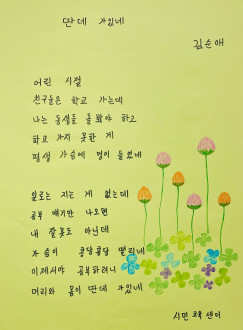 딴데 가있네
김순애
어린 시절
친구들은 학교 가는데
나는 동생들 돌봐야 하고
학교 가지 못한 게
평생 가슴에 멍이 들었네
말로는 지는 게 없는데
공부 얘기만 나오면
내 잘못도 아닌데
가슴이 콩당콩당 떨리네
이제서야 공부하려니
머리와 몸이 딴데 가있네
시면 교육 센터